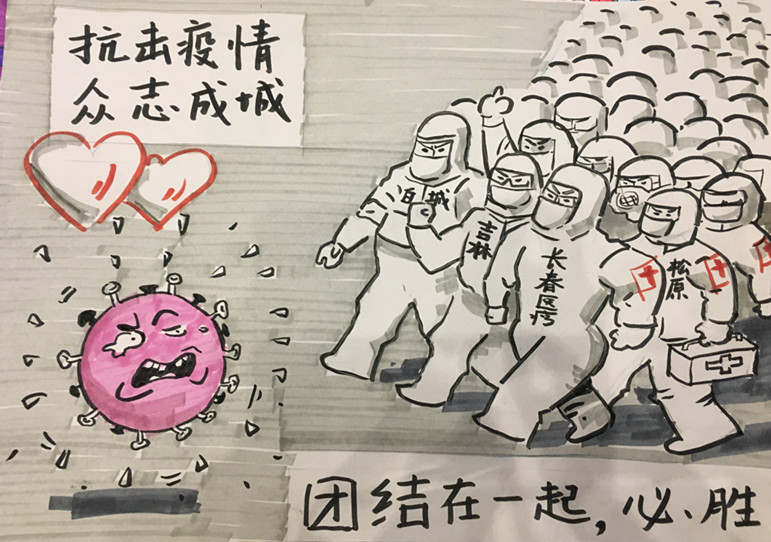 抗击疫情
众志成城
白城
吉林
长春医疗
松原
团结在一起,必胜